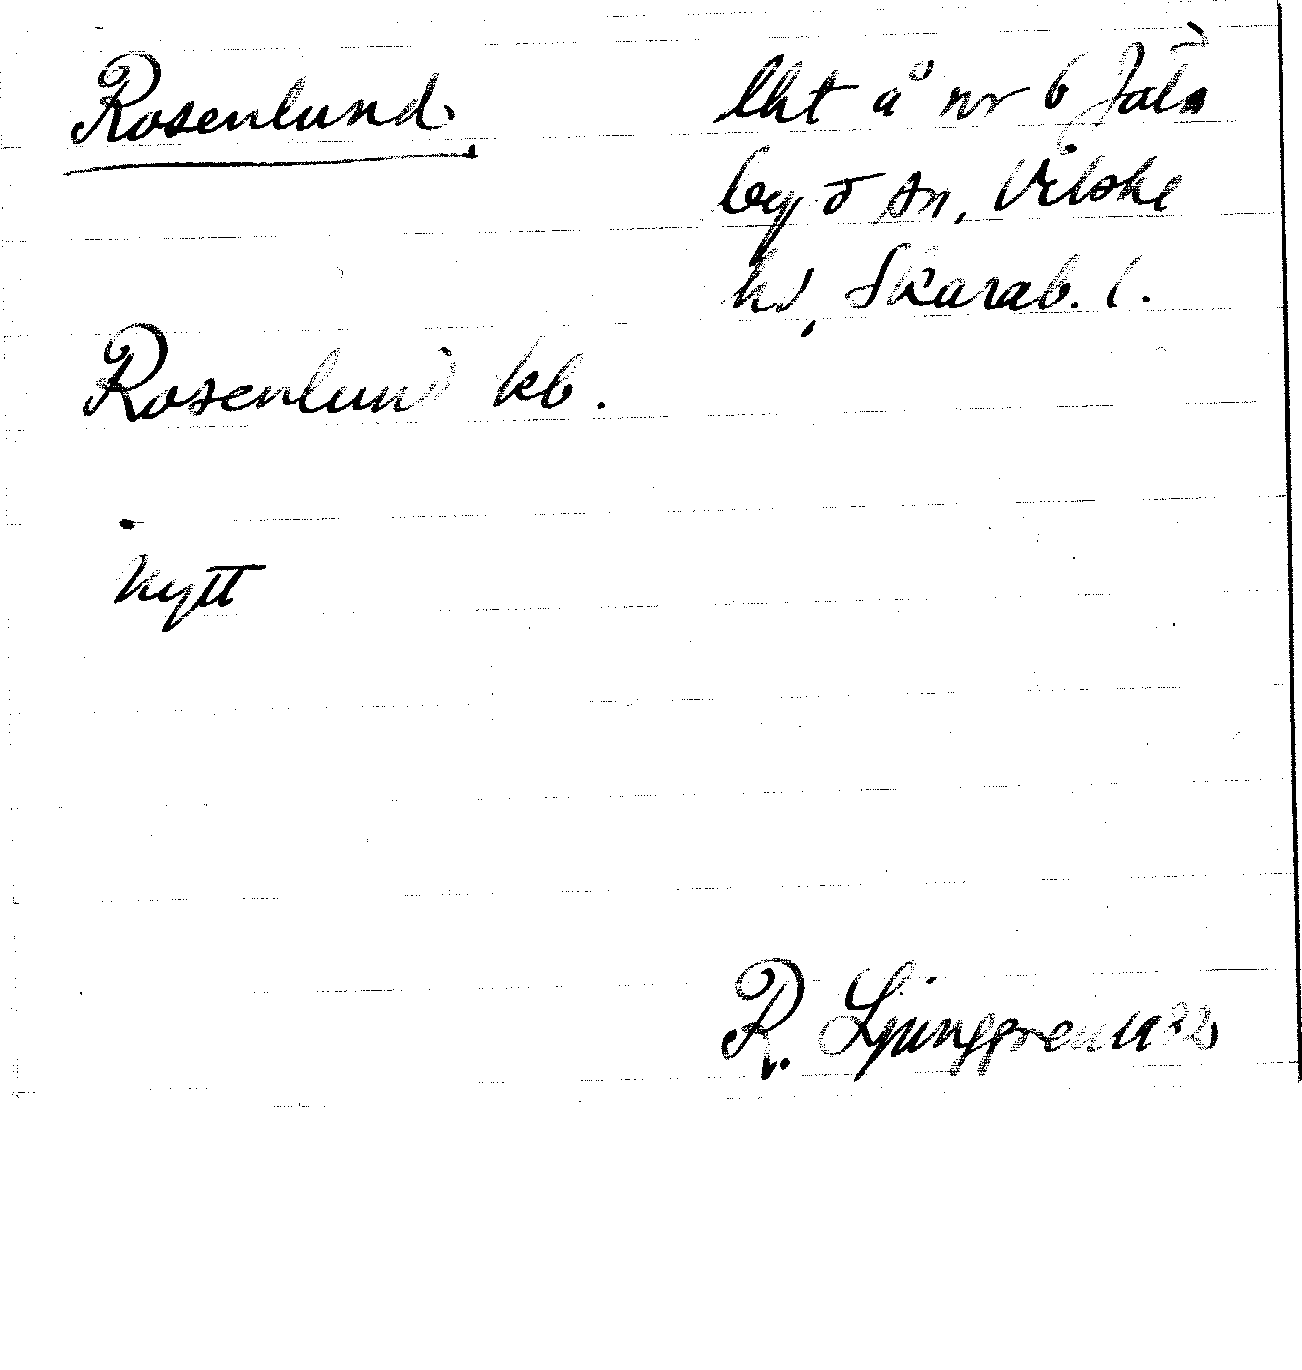 Rosenlund.
lht å nr 6 Jäla
by o sn, Vilske
hd, Skarab. l.
Rosenlund kb.
nytt
R. Ljunggren 1932